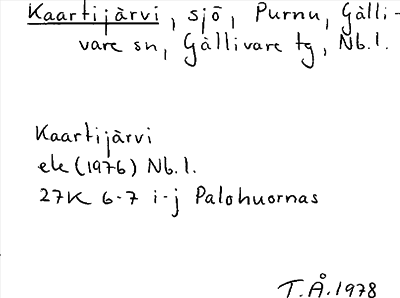 Kaartijärvi, sjö, Purnu, Gälli-
vare sn, Gällivare tg, Nb.l.
Kaartijärvi
ek (1976) Nb.l.
27K 6-7 i-j Palohuornas
T.Å.1978